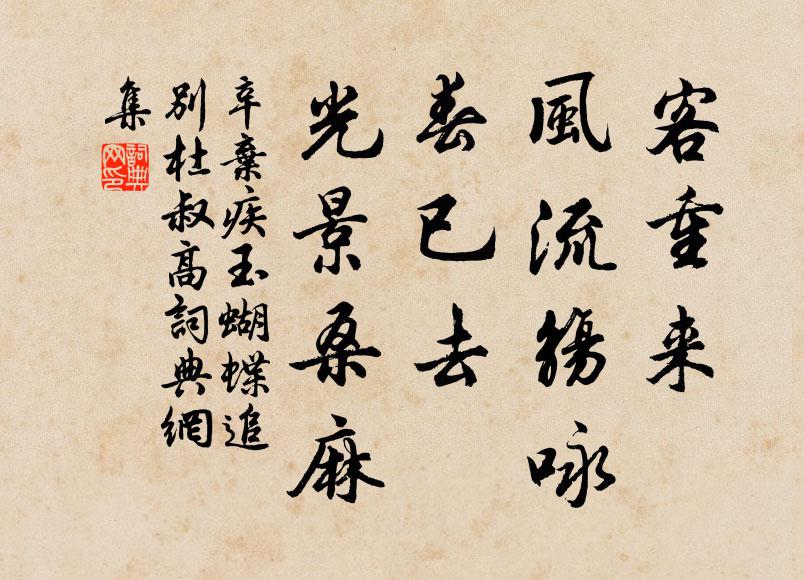 客重来
風流觴咏
春已去
光景桑麻
辛棄疾玉蝴蝶追
別杜叔高詞典網
集
詞典網印